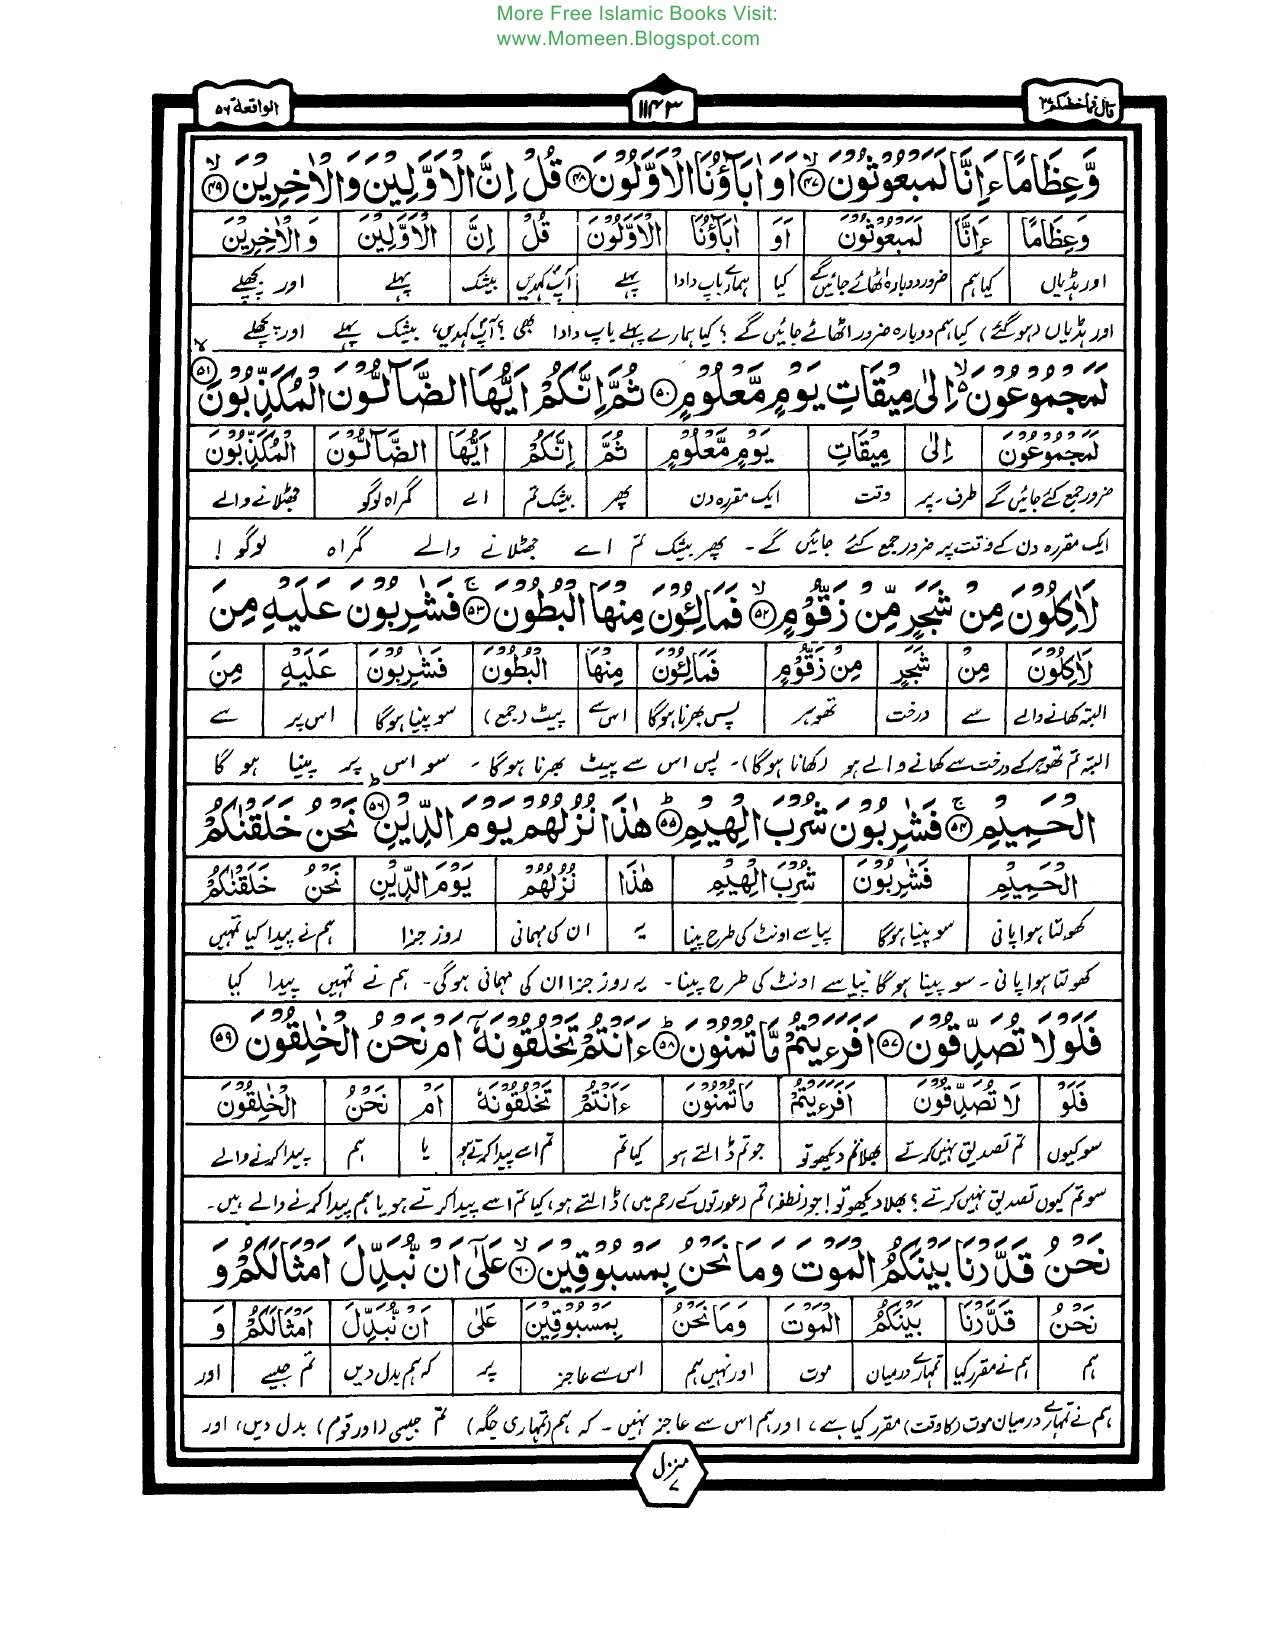 More Free Islamic Books Visit:
www.Momeen.Blogspot.com
قال فما خطبکم ۲۷ ۱۱۴۳ الواقعة ۵۶
وَّعِظَامًا ءَاِنَّا لَمَبْعُوْثُوْنَ ﴿۴۷﴾ اَوَ اٰبَآؤُنَا الْاَوَّلُوْنَ ﴿۴۸﴾ قُلْ اِنَّ الْاَوَّلِيْنَ وَالْاٰخِرِيْنَ ﴿۴۹﴾
وَعِظَامًا ءَاِنَّا لَمَبْعُوْثُوْنَ اَوَ اٰبَآؤُنَا الْاَوَّلُوْنَ قُلْ اِنَّ الْاَوَّلِيْنَ وَالْاٰخِرِيْنَ
اور ہڈیاں کیا ہم ضرور دوبارہ اٹھائے جائیں گے کیا ہمارے باپ دادا پہلے آپؐ کہدیں بیشک پہلے اور پچھلے
اور ہڈیاں (ہوگئے) کیا ہم دوبارہ ضرور اٹھائے جائیں گے ؟ کیا ہمارے پہلے باپ دادا بھی ؟ آپؐ کہدیں، بیشک پہلے اور پچھلے
لَمَجْمُوْعُوْنَ اِلٰى مِيْقَاتِ يَوْمٍ مَّعْلُوْمٍ ﴿۵۰﴾ ثُمَّ اِنَّكُمْ اَيُّهَا الضَّآلُّوْنَ الْمُكَذِّبُوْنَ ﴿۵۱﴾
لَمَجْمُوْعُوْنَ اِلٰى مِيْقَاتِ يَوْمٍ مَّعْلُوْمٍ ثُمَّ اِنَّكُمْ اَيُّهَا الضَّآلُّوْنَ الْمُكَذِّبُوْنَ
ضرور جمع کئے جائیں گے طرف ۔ پر وقت ایک مقررہ دن پھر بیشک تم اے گمراہ لوگو جھٹلانے والے
ایک مقررہ دن کے وقت پر ضرور جمع کئے جائیں گے ۔ پھر بیشک تم اے جھٹلانے والے گمراہ لوگو !
لَاٰكِلُوْنَ مِنْ شَجَرٍ مِّنْ زَقُّوْمٍ ﴿۵۲﴾ فَمَالِئُوْنَ مِنْهَا الْبُطُوْنَ ﴿۵۳﴾ فَشٰرِبُوْنَ عَلَيْهِ مِنَ
لَاٰكِلُوْنَ مِنْ شَجَرٍ مِنْ زَقُّوْمٍ فَمَالِئُوْنَ مِنْهَا الْبُطُوْنَ فَشٰرِبُوْنَ عَلَيْهِ مِنَ
البتہ کھانے والے سے درخت تھوہر پس بھرنا ہوگا اس سے پیٹ (جمع) سو پینا ہوگا اس پر سے
البتہ تم تھوہر کے درخت سے کھانے والے ہو (کھانا ہوگا) ۔ پس اس سے پیٹ بھرنا ہوگا ۔ سو اس پر پینا ہو گا
الْحَمِيْمِ ﴿۵۴﴾ فَشٰرِبُوْنَ شُرْبَ الْهِيْمِ ﴿۵۵﴾ هٰذَا نُزُلُهُمْ يَوْمَ الدِّيْنِ ﴿۵۶﴾ نَحْنُ خَلَقْنٰكُمْ
الْحَمِيْمِ فَشٰرِبُوْنَ شُرْبَ الْهِيْمِ هٰذَا نُزُلُهُمْ يَوْمَ الدِّيْنِ نَحْنُ خَلَقْنٰكُمْ
کھولتا ہوا پانی سو پینا ہوگا پیاسے اونٹ کی طرح پینا یہ ان کی مہمانی روز جزا ہم نے پیدا کیا تمہیں
کھولتا ہوا پانی ۔ سو پینا ہوگا پیاسے اونٹ کی طرح پینا ۔ یہ روز جزا ان کی مہمانی ہوگی ۔ ہم نے تمہیں پیدا کیا
فَلَوْلَا تُصَدِّقُوْنَ ﴿۵۷﴾ اَفَرَءَيْتُمْ مَّا تُمْنُوْنَ ﴿۵۸﴾ ءَاَنْتُمْ تَخْلُقُوْنَهٗٓ اَمْ نَحْنُ الْخٰلِقُوْنَ ﴿۵۹﴾
فَلَوْ لَا تُصَدِّقُوْنَ اَفَرَءَيْتُمْ مَا تُمْنُوْنَ ءَاَنْتُمْ تَخْلُقُوْنَهٗ اَمْ نَحْنُ الْخٰلِقُوْنَ
سو کیوں تم تصدیق نہیں کرتے بھلا تم دیکھو تو جو تم ڈالتے ہو کیا تم تم اسے پیدا کرتے ہو یا ہم پیدا کرنے والے
سو تم کیوں تصدیق نہیں کرتے ؟ بھلا دیکھو تو! جو (نطفہ) تم (عورتوں کے رحم میں) ڈالتے ہو، کیا تم اسے پیدا کرتے ہو یا ہم پیدا کرنے والے ہیں ۔
نَحْنُ قَدَّرْنَا بَيْنَكُمُ الْمَوْتَ وَمَا نَحْنُ بِمَسْبُوْقِيْنَ ﴿۶۰﴾ عَلٰٓى اَنْ نُّبَدِّلَ اَمْثَالَكُمْ وَ
نَحْنُ قَدَّرْنَا بَيْنَكُمُ الْمَوْتَ وَمَا نَحْنُ بِمَسْبُوْقِيْنَ عَلٰى اَنْ نُّبَدِّلَ اَمْثَالَكُمْ وَ
ہم ہم نے مقرر کیا تمہارے درمیان موت اور نہیں ہم اس سے عاجز پر کہ ہم بدل دیں تم جیسے اور
ہم نے تمہارے درمیان موت (کا وقت) مقرر کیا ہے، اور ہم اس سے عاجز نہیں ۔ کہ ہم (تمہاری جگہ) تم جیسی (اور قوم) بدل دیں، اور
منزل ۷